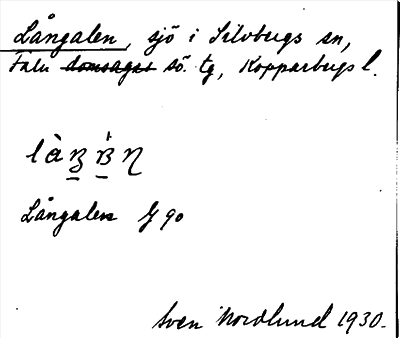 Långalen, sjö i Silvbergs sn,
Falu domsagas sö. tg, Kopparbergs l.
Långalen J 90
Sven Nordlund 1930.